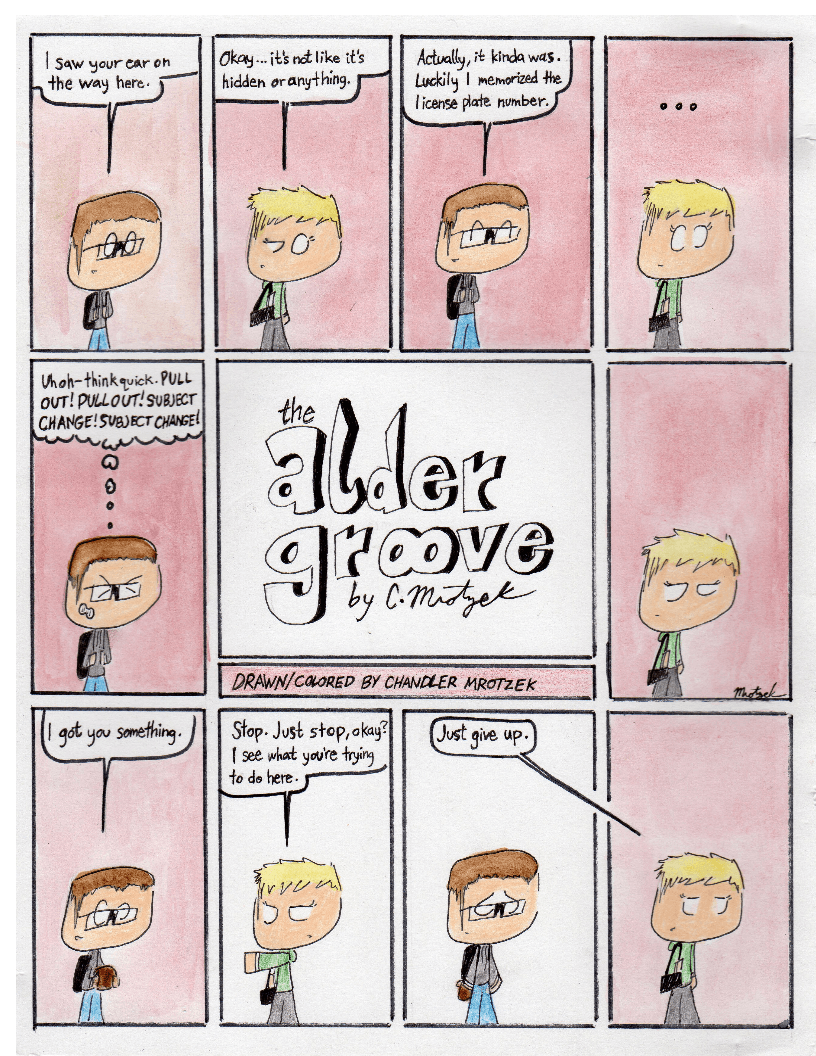 I saw your car on
the way here.
Okay... it's not like it's
hidden or anything.
Actually, it kinda was.
Luckily I memorized the
license plate number.
...
Uh oh-think quick. PULL
OUT! PULL OUT! SUBJECT
CHANGE! SUBJECT CHANGE!
the
alder
groove
by C. Mrotzek
DRAWN/COLORED BY CHANDLER MROTZEK
Mrotzek
I got you something.
Stop. Just stop, okay?
I see what you're trying
to do here.
Just give up.